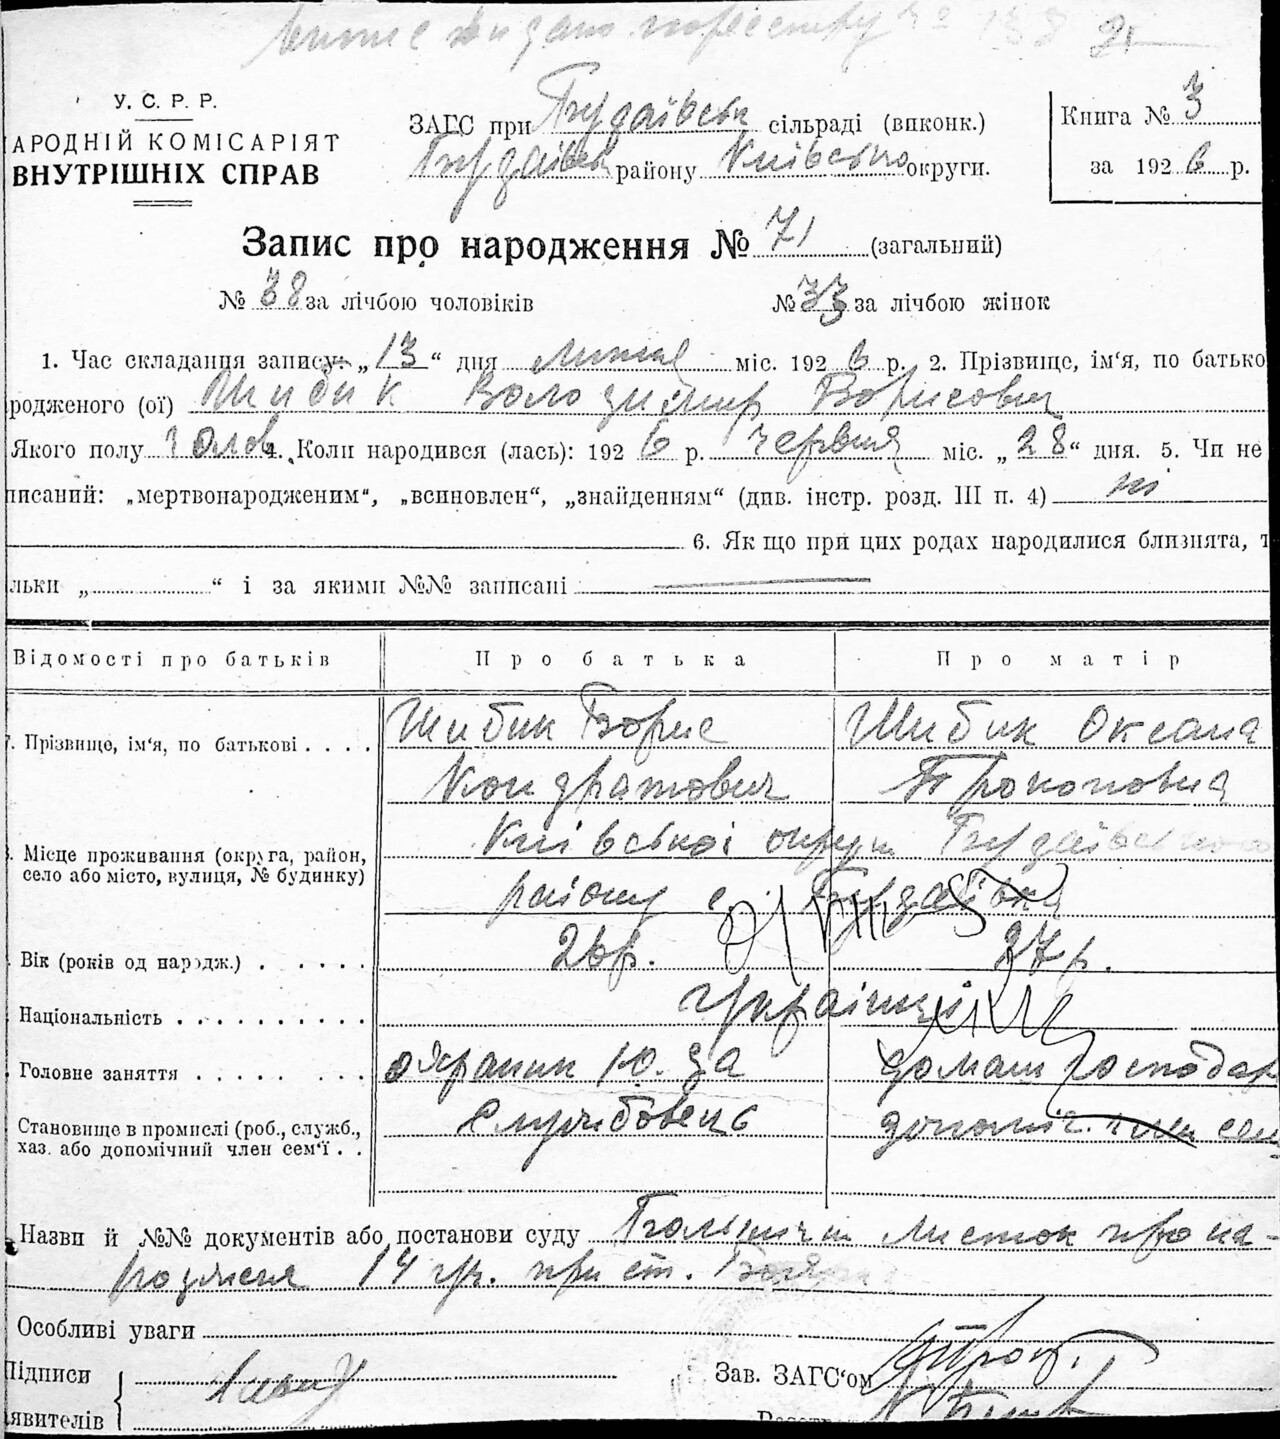 У. С. Р. Р.
АРОДНІЙ КОМІСАРІЯТ
ВНУТРІШНІХ СПРАВ
ЗАГС при Будаївськ сільраді (виконк.)
Будаївськ району Київсько округи.
Книга № 3
за 1926 р.
Запис про народження № 71 (загальний)
№ 38 за лічбою чоловіків № 33 за лічбою жінок
1. Час складання запису: „13“ дня липня міс. 1926 р. 2. Прізвище, ім'я, по батько
родженого (ої) Шибик Володимир Борисович
Якого полу чолов. 4. Коли народився (лась): 1926 р. червня міс. „28“ дня. 5. Чи не
писаний: „мертвонародженим“, „всиновлен“, „знайденням“ (див. інстр. розд. III п. 4) ні
6. Як що при цих родах народилися близнята, т
льки „ “ і за якими №№ записані
Відомості про батьків Про батька Про матір
7. Прізвище, ім'я, по батькові . . . . Шибик Борис Шибик Оксана
Кондратович Прокоповна
Місце проживання (округа, район, село або місто, вулиця, № будинку) Київської округи Будаївського
району с. Будаївка
Вік (років од народж.) . . . . . . 26 р. 27 р.
Національність . . . . . . . . . . українці
Головне заняття . . . . . . . . охраник Ю. З. Д домаш господар
Становище в промислі (роб., служб., хаз. або допомічний член сем'ї . . Службовець допоміч. член сем
Назви й №№ документів або постанови суду Больничн листок про на-
родження 14 гр. при ст. Бояр
Особливі уваги
Підписи
явителів
Зав. ЗАГС'ом